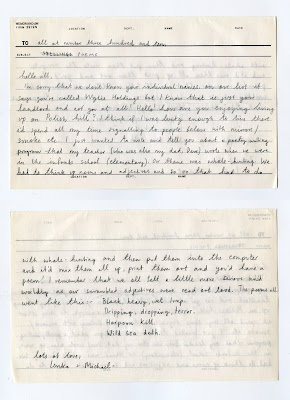 MEMORANDUM
LOCATION DEPT. NAME DATE
TO all at number three hundred and
SUBJECT POEMS
hello all.
I'm sorry that we don't know your individual names. on our list it
says you're called Wylie Holdings but I know that is just your
landlord and not you at all! Hello! how are you enjoying living
up on Polish hill? I think if I were lucky enough to live there
i'd spend all my time signalling to people below with mirrors/
smoke etc. I just wanted to write and tell you about a poetry writing
program that my teacher (who was also my dad, Dave) wrote when we were
in the infants school (elementary). Our theme was whale-hunting. We
had to think up nouns and adjectives and so on that had to do
LOCATION DEPT. NAME DATE
MEMORANDUM
with whale-hunting and then put them into the computer
and it'd mix them all up, print them out and you'd have a
poem! I remember that we all felt a little more serious and
worldly as our scrambled adjectives were read out loud. The poems all
went like this:- Black, heavy, wet trap.
Dripping, dropping, terror.
Harpoon kill.
Wild sea death.
lots of love,
Lenka + Michael